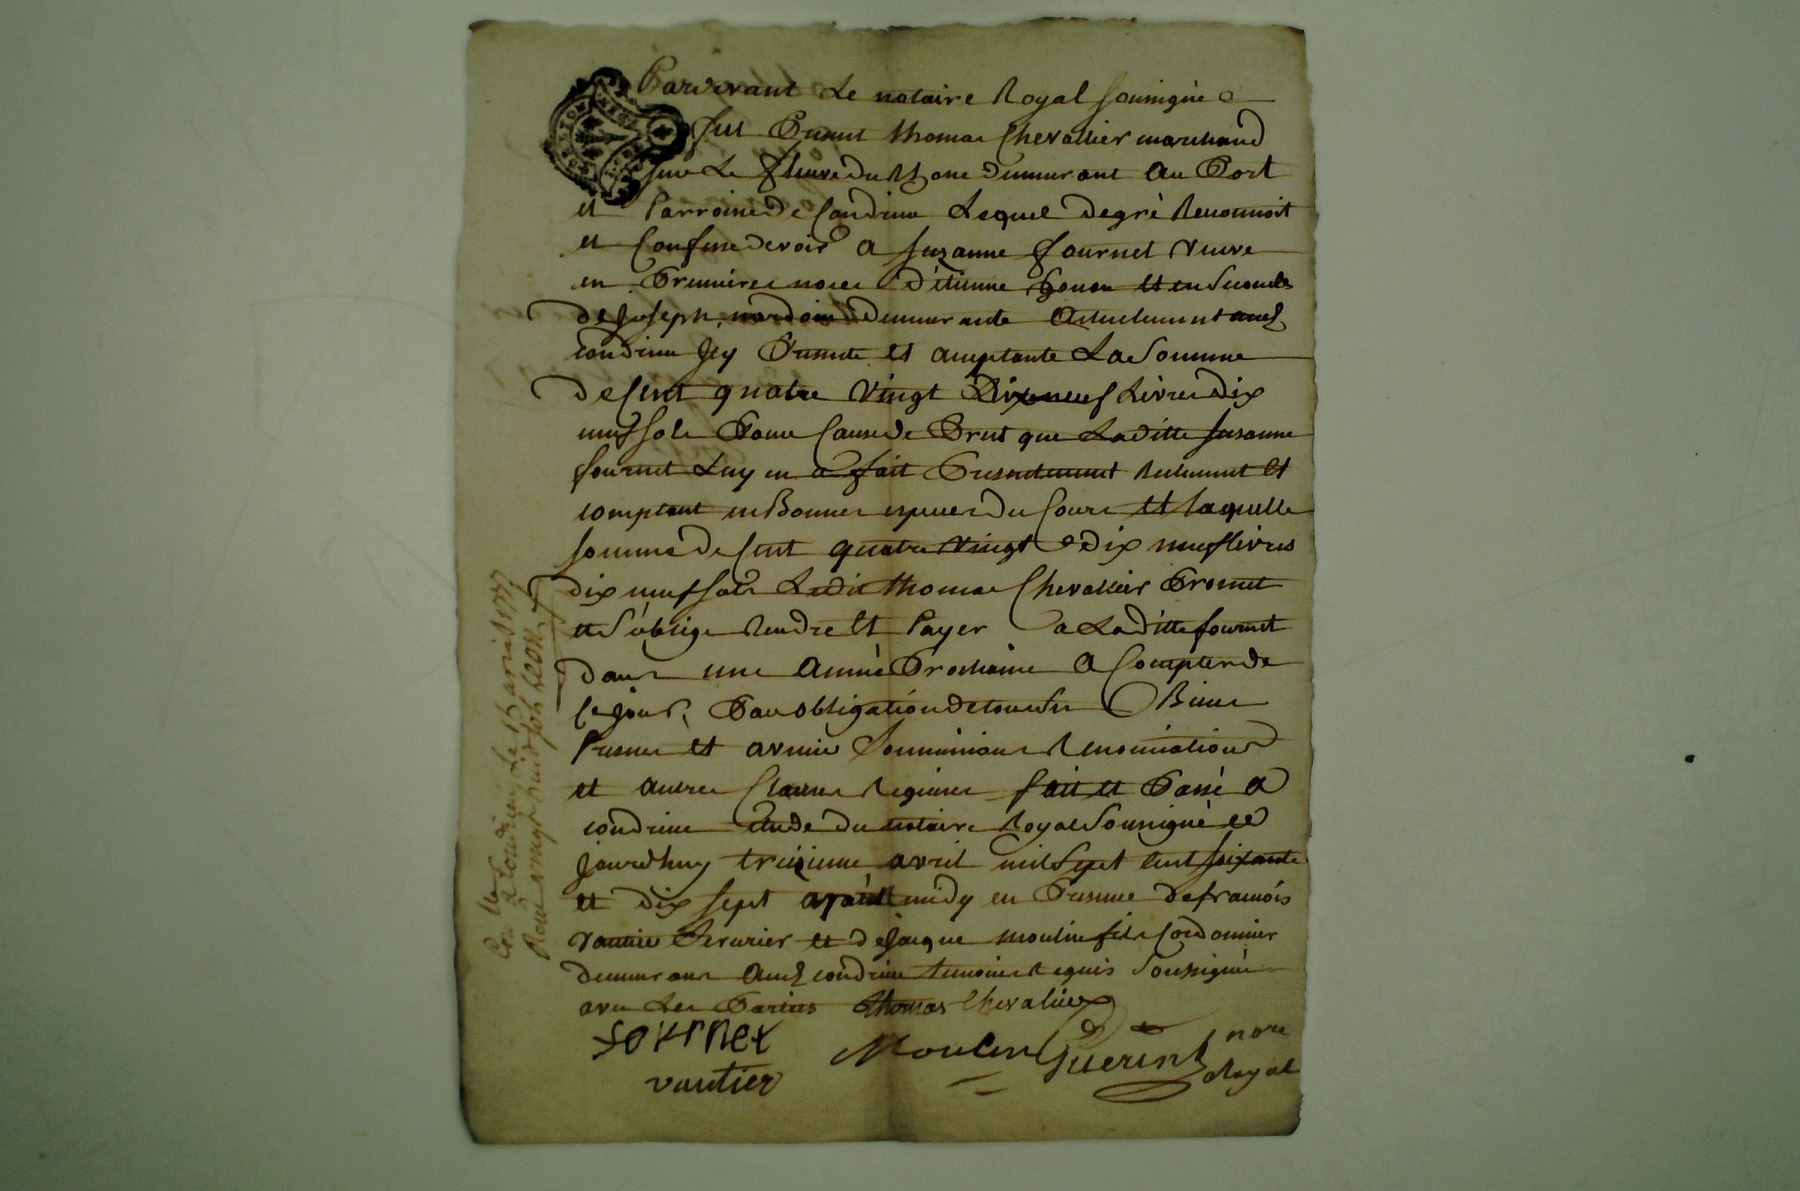 Pardevant Le notaire Royal soussigné
fut Present thomas Chevallier marchand
sur Le fleuve du Rhone demeurant au Port
et Parroisse de Condrieu Lequel de gré Reconnoit
et Confesse devoir a suzanne fournet veuve
en Premieres noces d'étienne et en Secondes
de Joseph demeurante Actuelement audt
condrieu Jcy Presente et acceptante La Somme
de Cent quatre vingt Dix neuf Livres dix
neuf sols Pour Cause de Pret que Laditte susanne
fournet Luy en a fait Presentement Reelement et
comptant en Bonnes especes du Cours et laquelle
somme de Cent quatre vingt dix neuf livres
dix neuf sols Ledit thomas Chevallier Promet
et s'oblige Rendre et Payer a Laditte fournet
dans une année Prochaine a Compter de
Ce jour, Par obligation de tous ses Biens
Presens et avenir Soumissions Renonciations
et autres Clauses Requises fait et Passé a
condrieu étude du notaire Royal Soussigné ce
jourdhuy treizieme avril mil Sept Cent soixante
et dix sept midy en Presence de francois
vautier Serurier et de Jacque moulin fils Cordonnier
demeurans audt condrieu temoins Requis Soussignés
avec Les Parties thomas Chevalier
fournet
vautier
Moulin
Guerin nore
Royal
a Condrieu Le 15 avril 1777
Reçu vingt huit sols